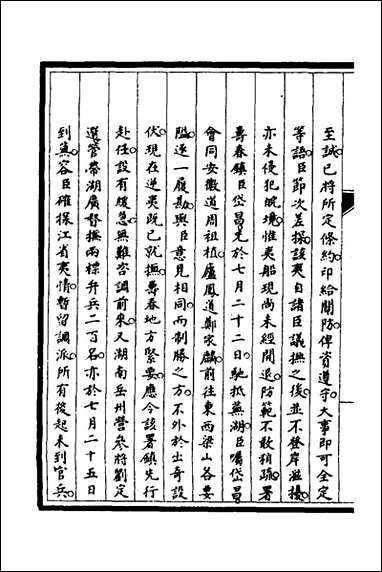 至誠已將所定條約印給關防俾資遵守大事即可全定
等語臣節次差探該夷自諸臣議撫之後並不登岸滋擾
亦未侵犯皖境惟夷船現尚未經開退防範不敢稍疏署
壽春鎮臣岱昌先於七月二十二日馳抵蕪湖臣囑岱昌
會同安徽道周祖植廬鳳道鄭家麟前往東西梁山各要
隘逐一履勘與臣意見相同而制勝之方不外於出奇設
伏現在逆夷既已就撫壽春地方緊要應令該署鎮先行
赴任設有緩急無難咨調前來又湖南岳州營參將劉定
選管帶湖廣督撫兩標弁兵二百名亦於七月二十五日
到蕪容臣確探江省夷情暫留調派所有後起未到官兵